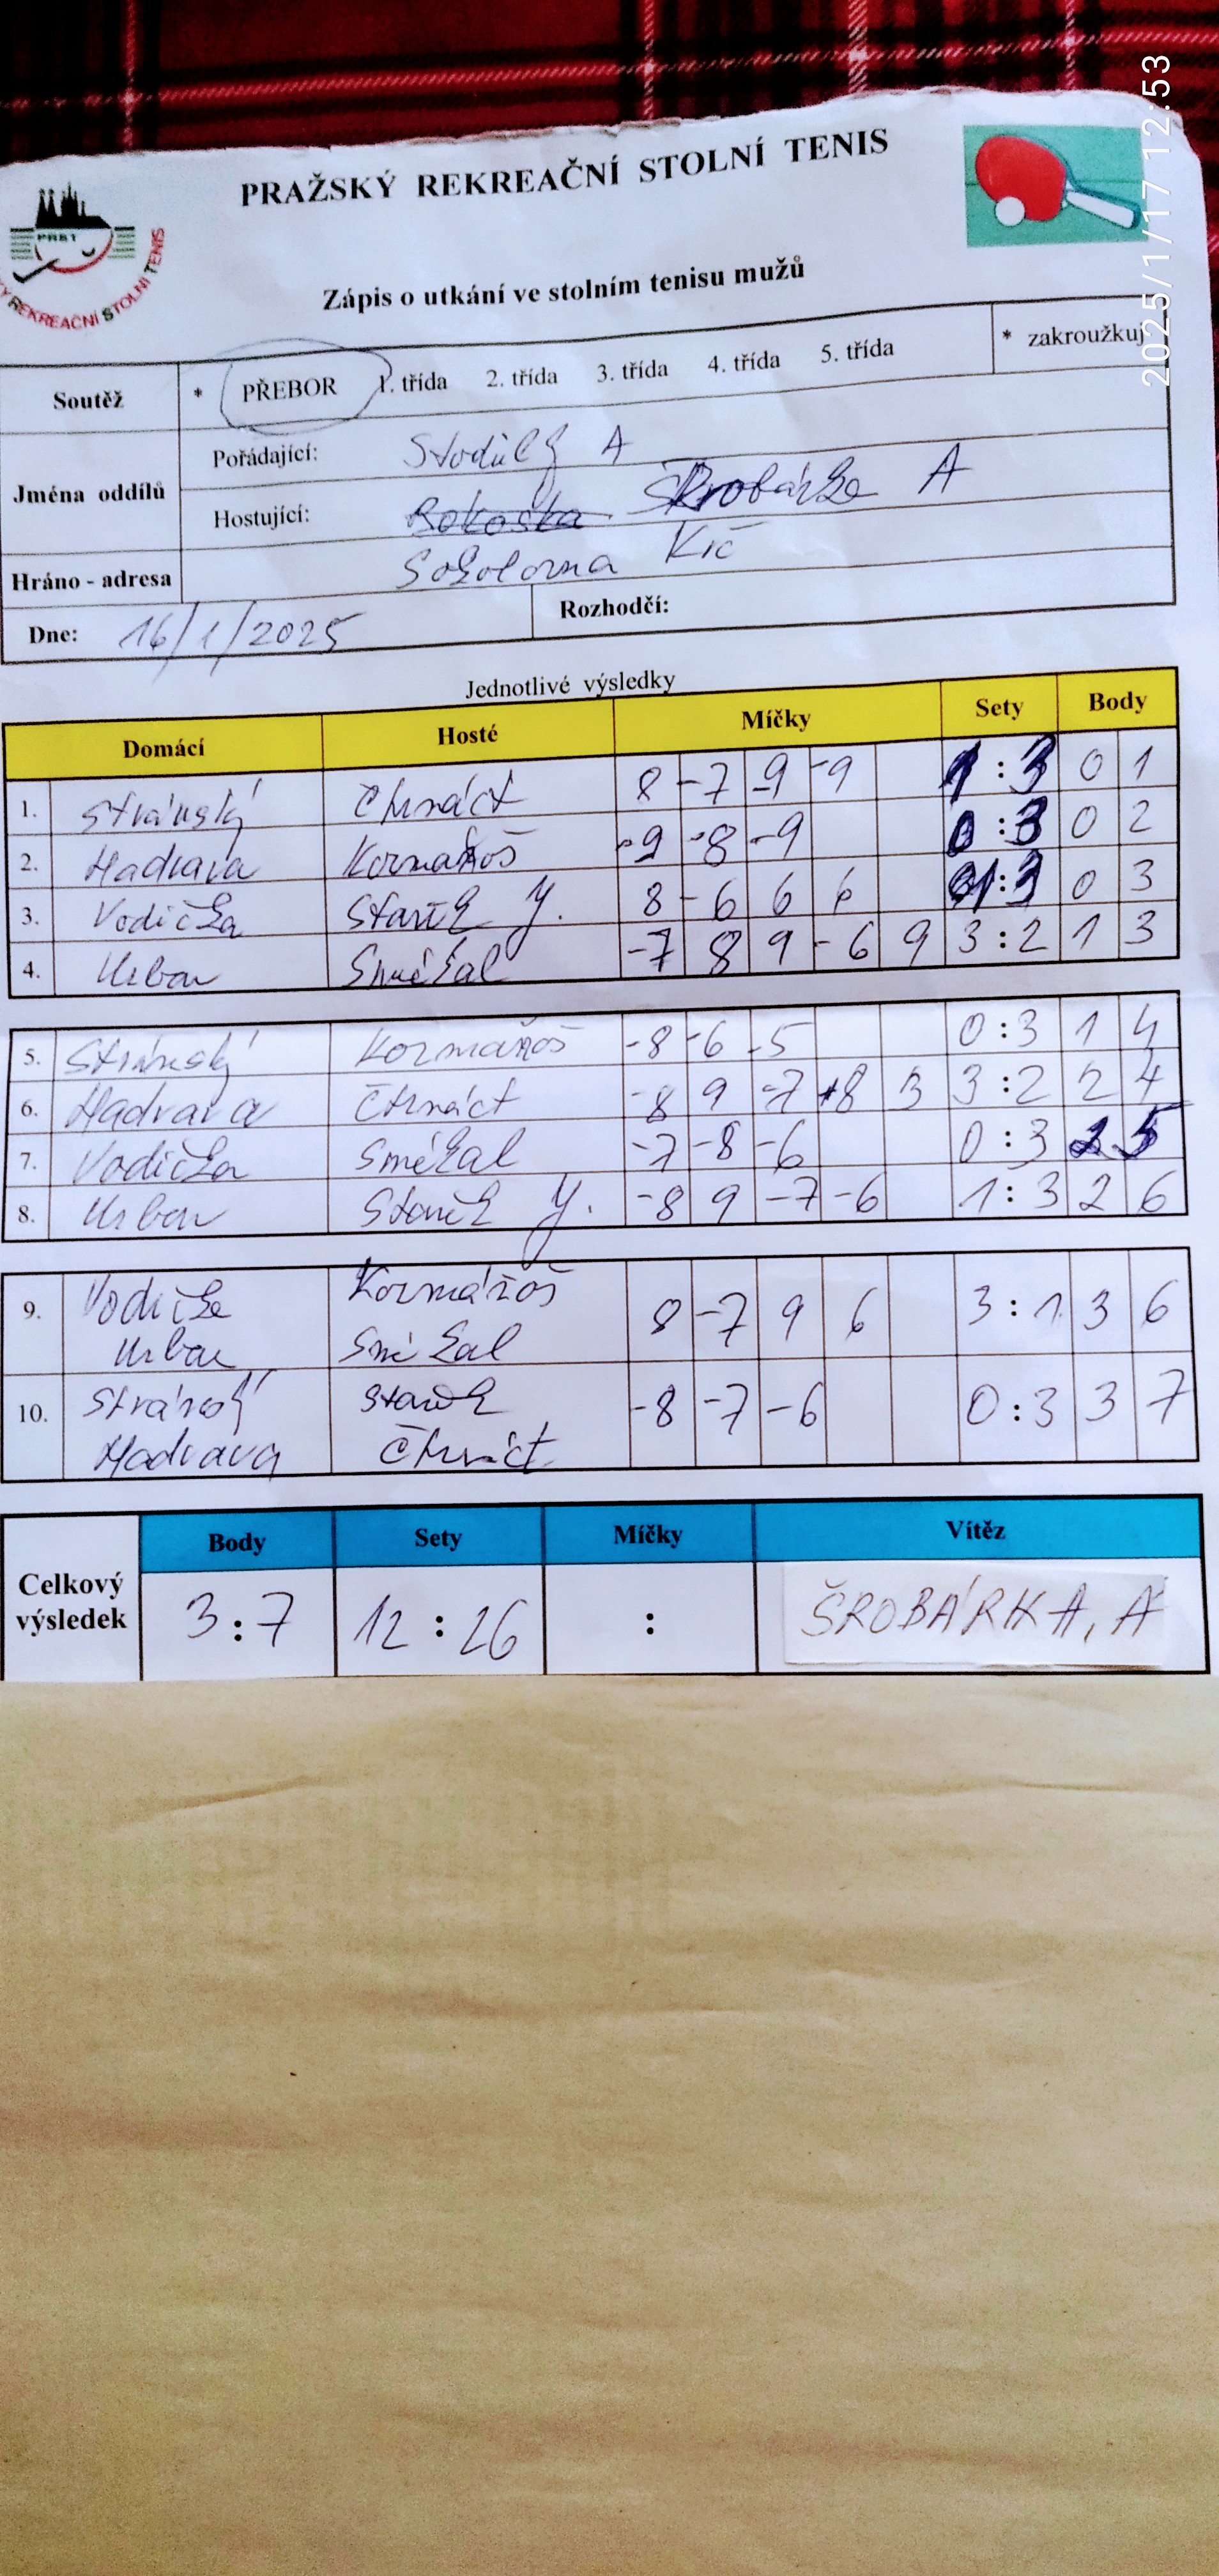 2025/1/17 12:53
PRAŽSKÝ REKREAČNÍ STOLNÍ TENIS
PRST
REKREAČNÍ STOLNÍ TENIS
Zápis o utkání ve stolním tenisu mužů
Soutěž * PŘEBOR 1. třída 2. třída 3. třída 4. třída 5. třída * zakroužkuj
Jména oddílů
Pořádající: Stodůlky A
Hostující: Šrobárka A
Hráno - adresa Sokolovna
Dne: 16/1/2025 Rozhodčí:
Jednotlivé výsledky
Domácí Hosté Míčky Sety Body
1. Stránský Čtrnáct 8 -7 -9 -9 1:3 0 1
2. Hadrava Kormaňoš -9 -8 -9 0:3 0 2
3. Vodička Staněk J. 8 -6 6 6 1:3 0 3
4. Urban Smékal -7 8 9 -6 9 3:2 1 3
5. Stránský Kormaňoš -8 -6 -5 0:3 1 4
6. Hadrava Čtrnáct -8 9 -7 +8 3 3:2 2 4
7. Vodička Smékal -7 -8 -6 0:3 2 5
8. Urban Staněk J. -8 9 -7 -6 1:3 2 6
9. Vodička Kormáňoš 8 -7 9 6 3:1 3 6
Urban Smékal
10. Stránský Staněk -8 -7 -6 0:3 3 7
Hadrava Čtrnáct
Celkový výsledek
Body Sety Míčky Vítěz
3:7 12:26 : ŠROBÁRKA, A